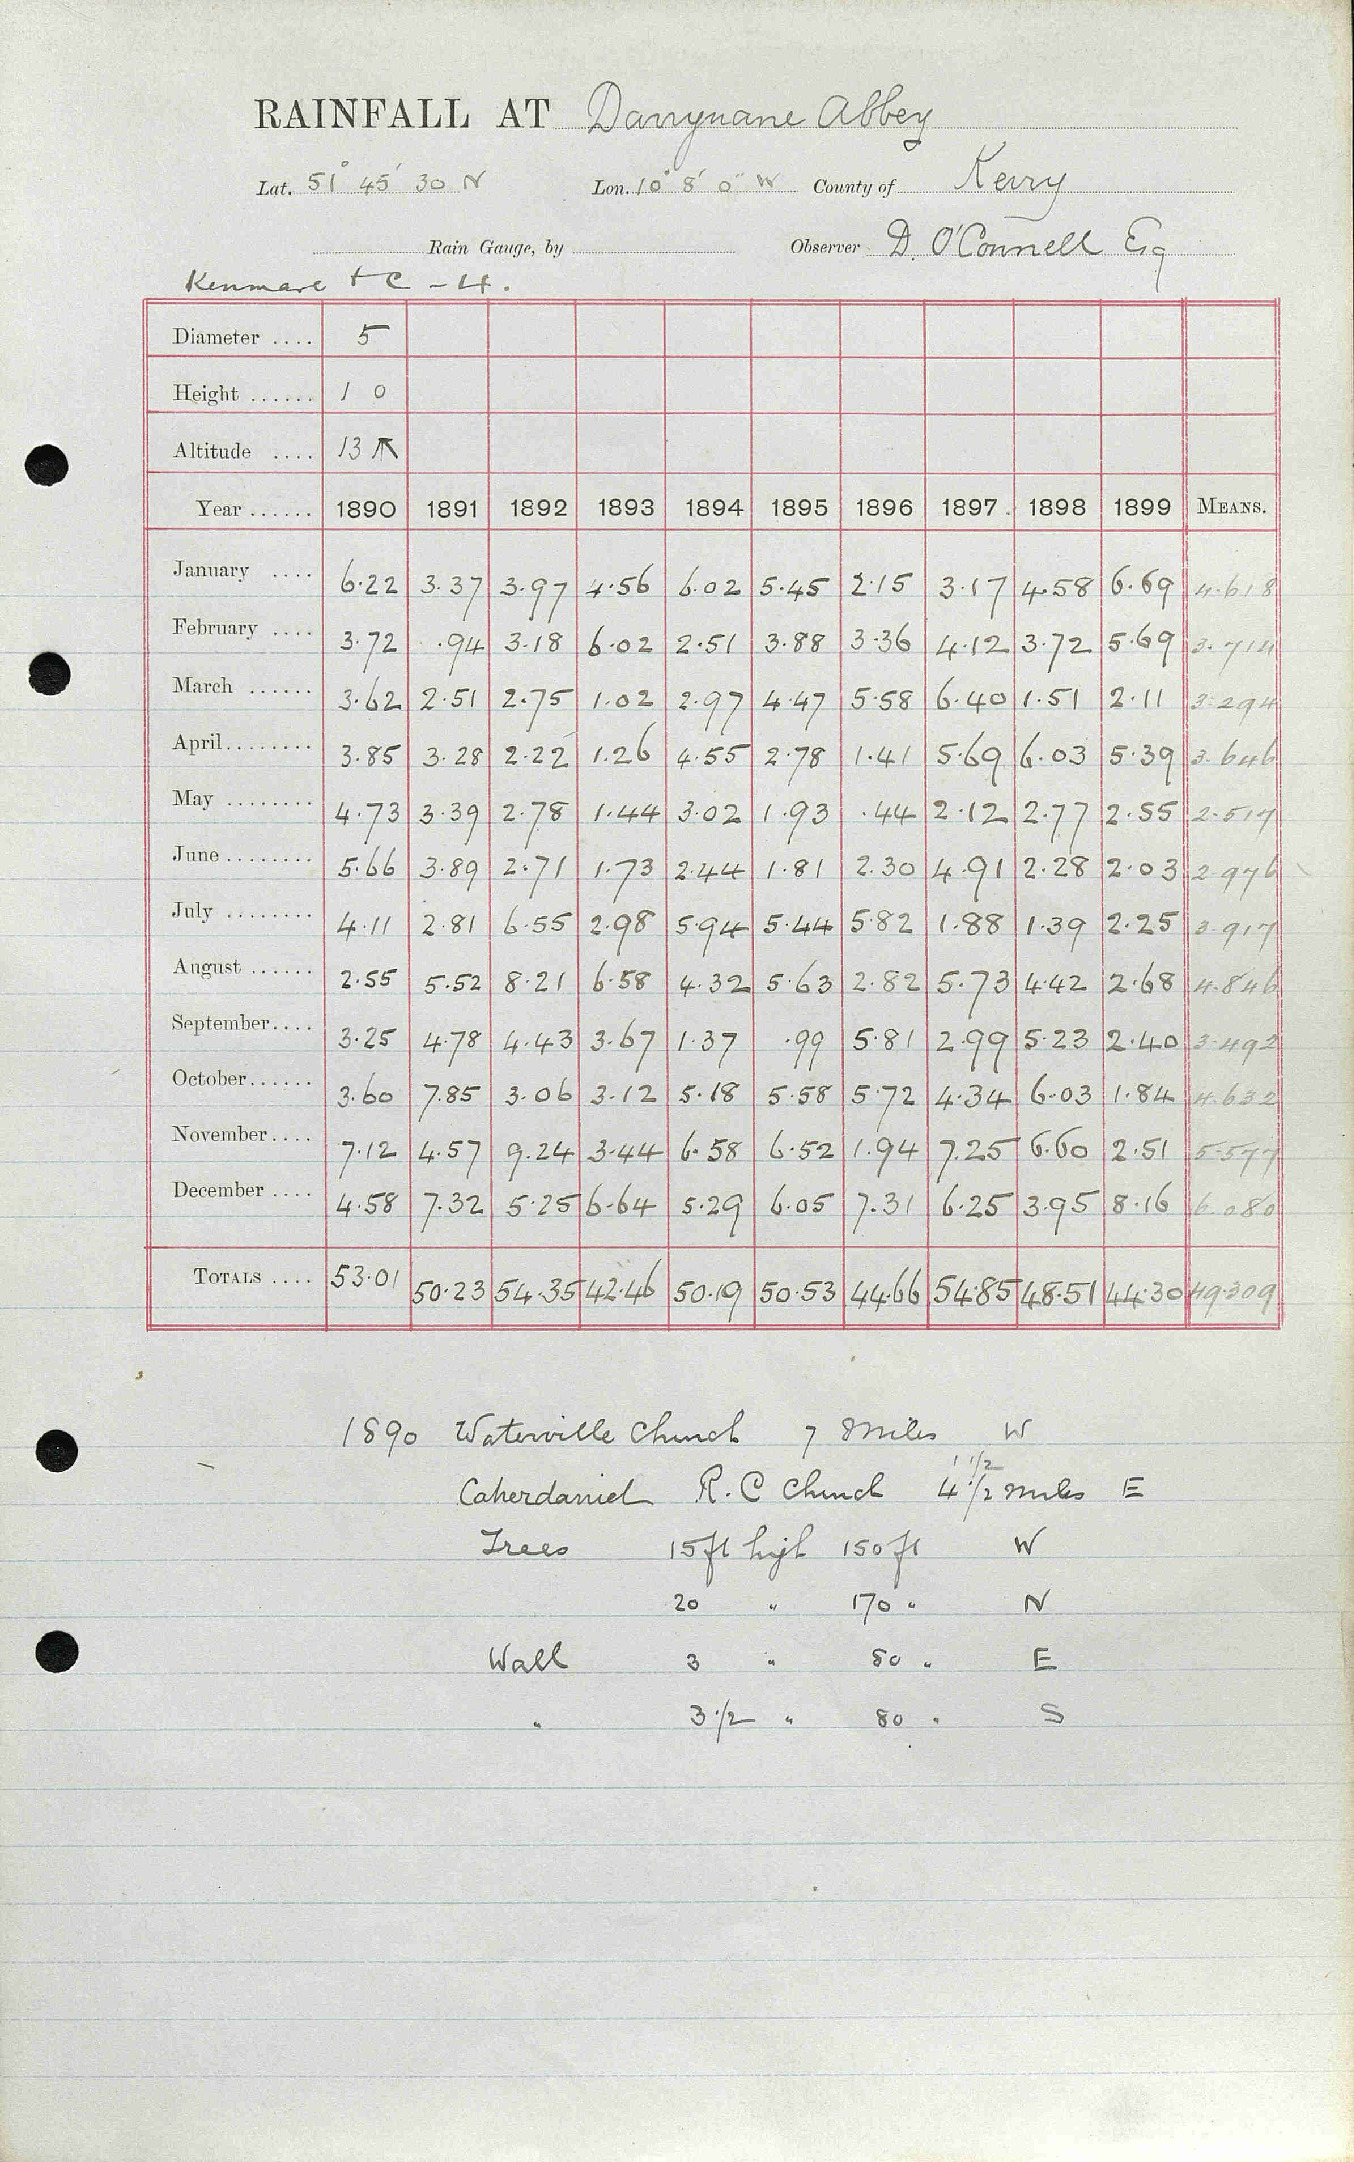 RAINFALL AT Darrynane Abbey
Lat. 51° 45' 30 N Lon. 10° 8' 0" W County of Kerry
Rain Gauge, by Observer D. O'Connell Esq
Kenmare + C - 4.
Diameter .... 5
Height ...... 1 0
Altitude .... 13
Year ...... 1890 1891 1892 1893 1894 1895 1896 1897 1898 1899 MEANS.
January .... 6.22 3.37 3.97 4.56 6.02 5.45 2.15 3.17 4.58 6.69 4.618
February .... 3.72 .94 3.18 6.02 2.51 3.88 3.36 4.12 3.72 5.69 3.714
March ...... 3.62 2.51 2.75 1.02 2.97 4.47 5.58 6.40 1.51 2.11 3.294
April ........ 3.85 3.28 2.22 1.26 4.55 2.78 1.41 5.69 6.03 5.39 3.646
May ........ 4.73 3.39 2.78 1.44 3.02 1.93 .44 2.12 2.77 2.55 2.517
June ........ 5.66 3.89 2.71 1.73 2.44 1.81 2.30 4.91 2.28 2.03 2.976
July ........ 4.11 2.81 6.55 2.98 5.94 5.44 5.82 1.88 1.39 2.25 3.917
August ...... 2.55 5.52 8.21 6.58 4.32 5.63 2.82 5.73 4.42 2.68 4.846
September .... 3.25 4.78 4.43 3.67 1.37 .99 5.81 2.99 5.23 2.40 3.492
October ...... 3.60 7.85 3.06 3.12 5.18 5.58 5.72 4.34 6.03 1.84 4.632
November .... 7.12 4.57 9.24 3.44 6.58 6.52 1.94 7.25 6.60 2.51 5.577
December .... 4.58 7.32 5.25 6.64 5.29 6.05 7.31 6.25 3.95 8.16 6.080
TOTALS .... 53.01 50.23 54.35 42.46 50.19 50.53 44.66 54.85 48.51 44.30 49.309
1890 Waterville Church 7 Miles W
1 1/2
Caherdaniel R.C Church 4 1/2 miles E
Trees 15 ft high 150 ft W
20 " 170 " N
Wall 3 " 80 " E
" 3 1/2 " 80 " S